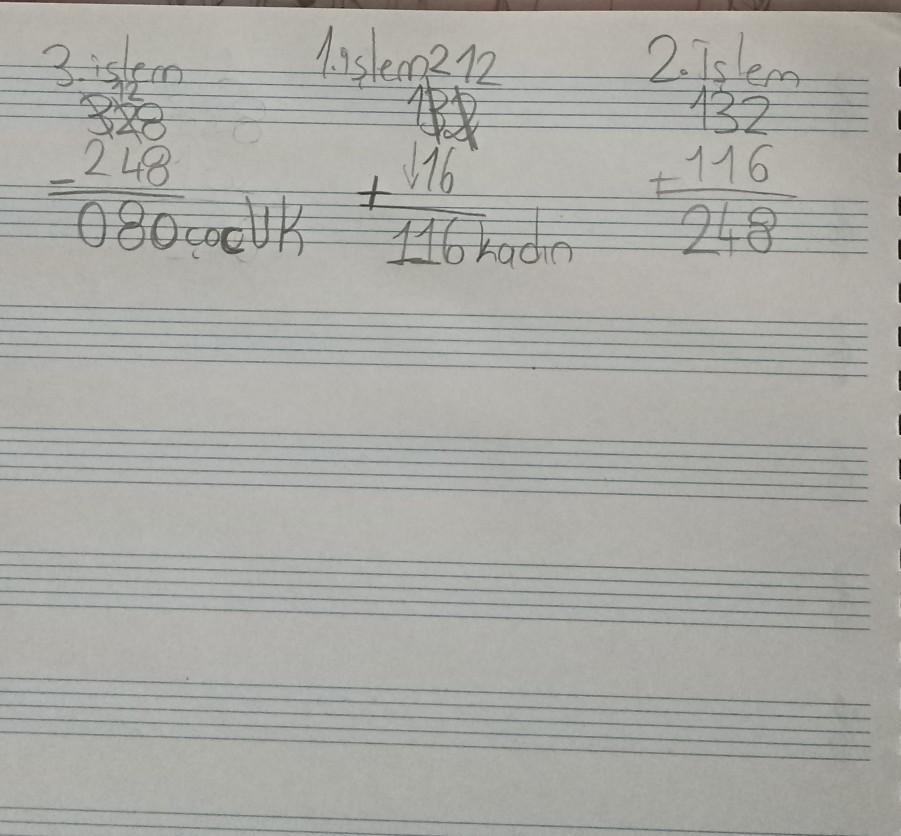 3.işlem
12
328
- 248
080 çocUK
1.işlem 2 12
132
↓16
+
116 kadın
2.İşlem
132
+ 116
248